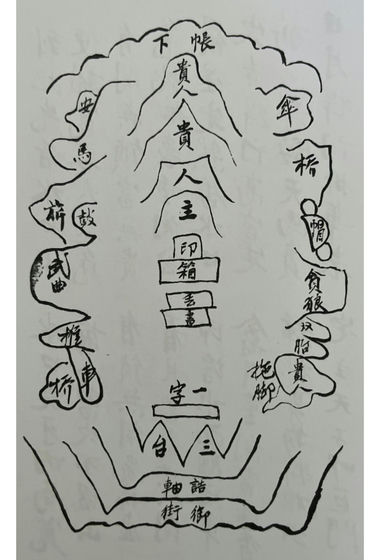 帳下
貴人
貴
人
主
印
箱
一字
三台
誥軸
御街
傘
椅
帽
貪狼
双胎貴人
拖脚
安
馬
鼓
武曲
推車
桥